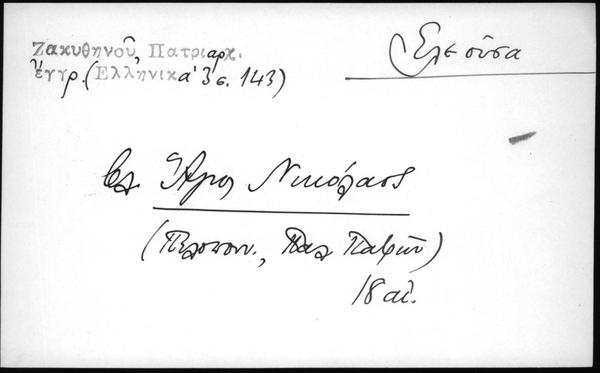 Ζακυθηνοῦ, Πατριαρχ.
ἔγγρ. (Ἑλληνικα 3 σ. 143)
Ἐλεοῦσα
Ἅγιος Νικόλαος
(Πελοπον., Παλ Πατρῶν)
18 αἰ.